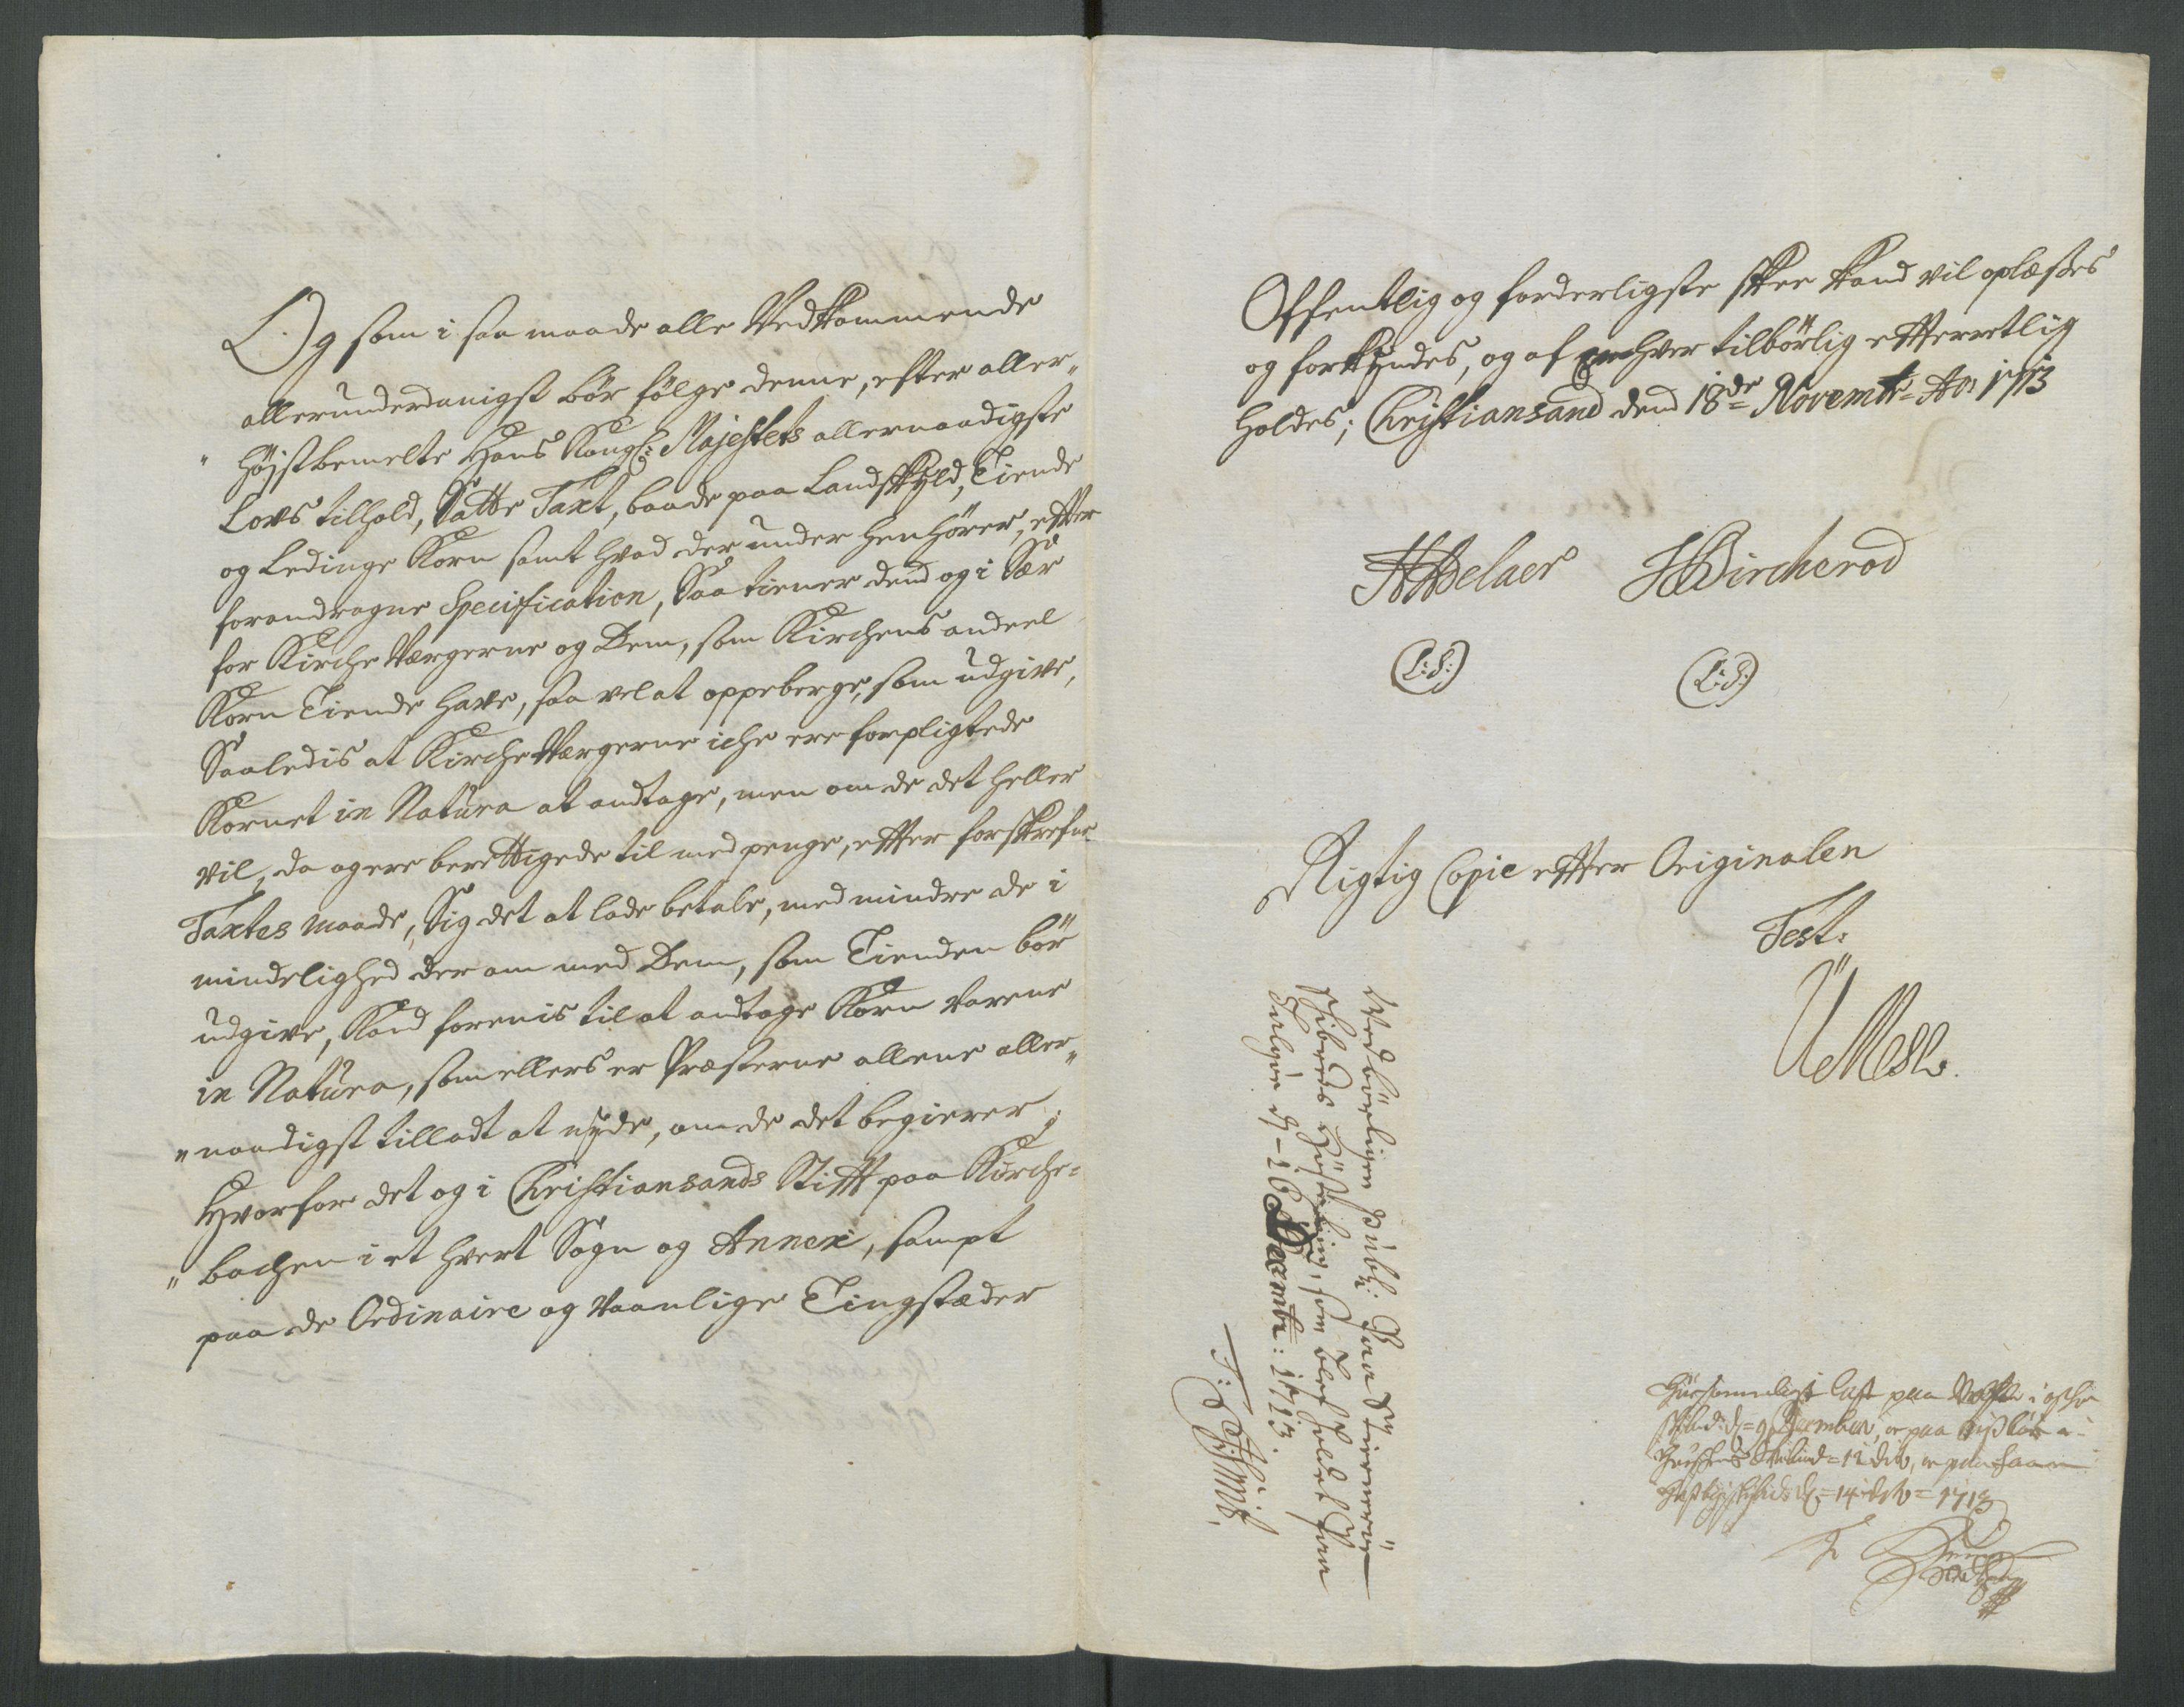 Og som i saa maade alle Vedkommende
allerunderdanigst bör fölge denne, efter aller„
„höjstbemelte Hans Kongl: Majestets allernaadigste
Lovs tilhold, Satte Taxt, baade paa Landskyld, Tiende
og Ledinge Korn samt hvad der under henhörer, efter
forandragne Specification, Saa tiener dend og i Sær
for Kirche Wærgerne og Dem, som Kirchens andeel
Korn Tiende have, saa vel at oppeberge, som udgive,
Saaledis at Kirche Wærgerne iche ere forpligtede
Kornet in Natura at andtage, men om de det heller
vil, da og ere berettigede til med penge, efter forskrefne
Taxtes maade, Sig det at lade betale, med mindre de i
mindelighed der om med Dem, som Tienden bör
udgive, Kand forenis til at andtage Korn Varene
in Natura, som ellers er Præsterne allene aller„
„naadigst tilladt at nyde, om de det begierer;
Hvorfor det og i Christiansands Stift paa Kirche-
„bachen i et hvert Sogn og Annex, sampt
paa de Ordinaire og Vaanlige Tingstæder
Offentlig og forderligste skee Kand vil oplæses
og forkyndes, og af Enhver tilbörlig efterretlig
holdes; Christiansand dend 18de Novembr: Ao 1713
HAdelaer JBircherod
(L:S:) (L:S:)
Rigtig Copie efter Originalen
Test:
Ved börligen Publ: Paa Stiernerüe
Schibreds Hösteting, som blef holdet paa
d - 16 Decembr: 1713.
Hüssommeligt læst paa
Skibr: d= 9 December, og paa
Schibred= 12 dito, og paa
d= 14 dito= 1713